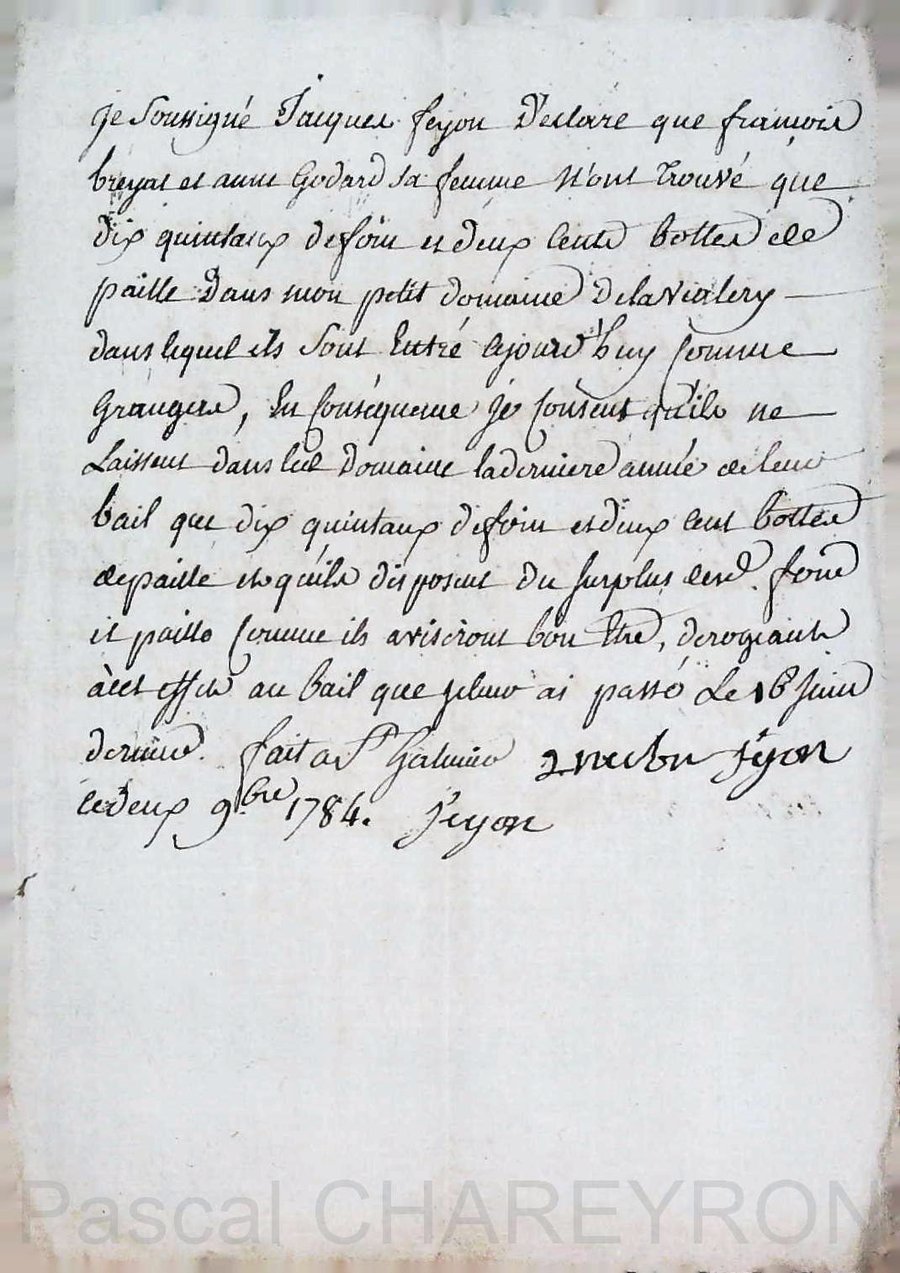 je soussigné Jacques feyon Déclare que françois
breyat et anne Godard sa femme N'ont Trouvé que
dix quintaux de foin et deux cents bottes de
paille Dans mon petit domaine Delavialery
dans lequel ils sont Entré cejourd'huy Comme
Grangers, En Conséquence je Consens qu'ils ne
Laissent dans led Domaine la derniere année de leur
bail que dix quintaux de foin et deux cent bottes
de paille et qu'ils disposent Du surplus desd. foin
et paille Comme ils aviseront bon Etre, derogeants
à cet effet au bail que je leur ai passé Le 16 Juin
dernier. fait a St Galmier Feyon
ce deux 9.bre 1784. feyon
Pascal CHAREYRON